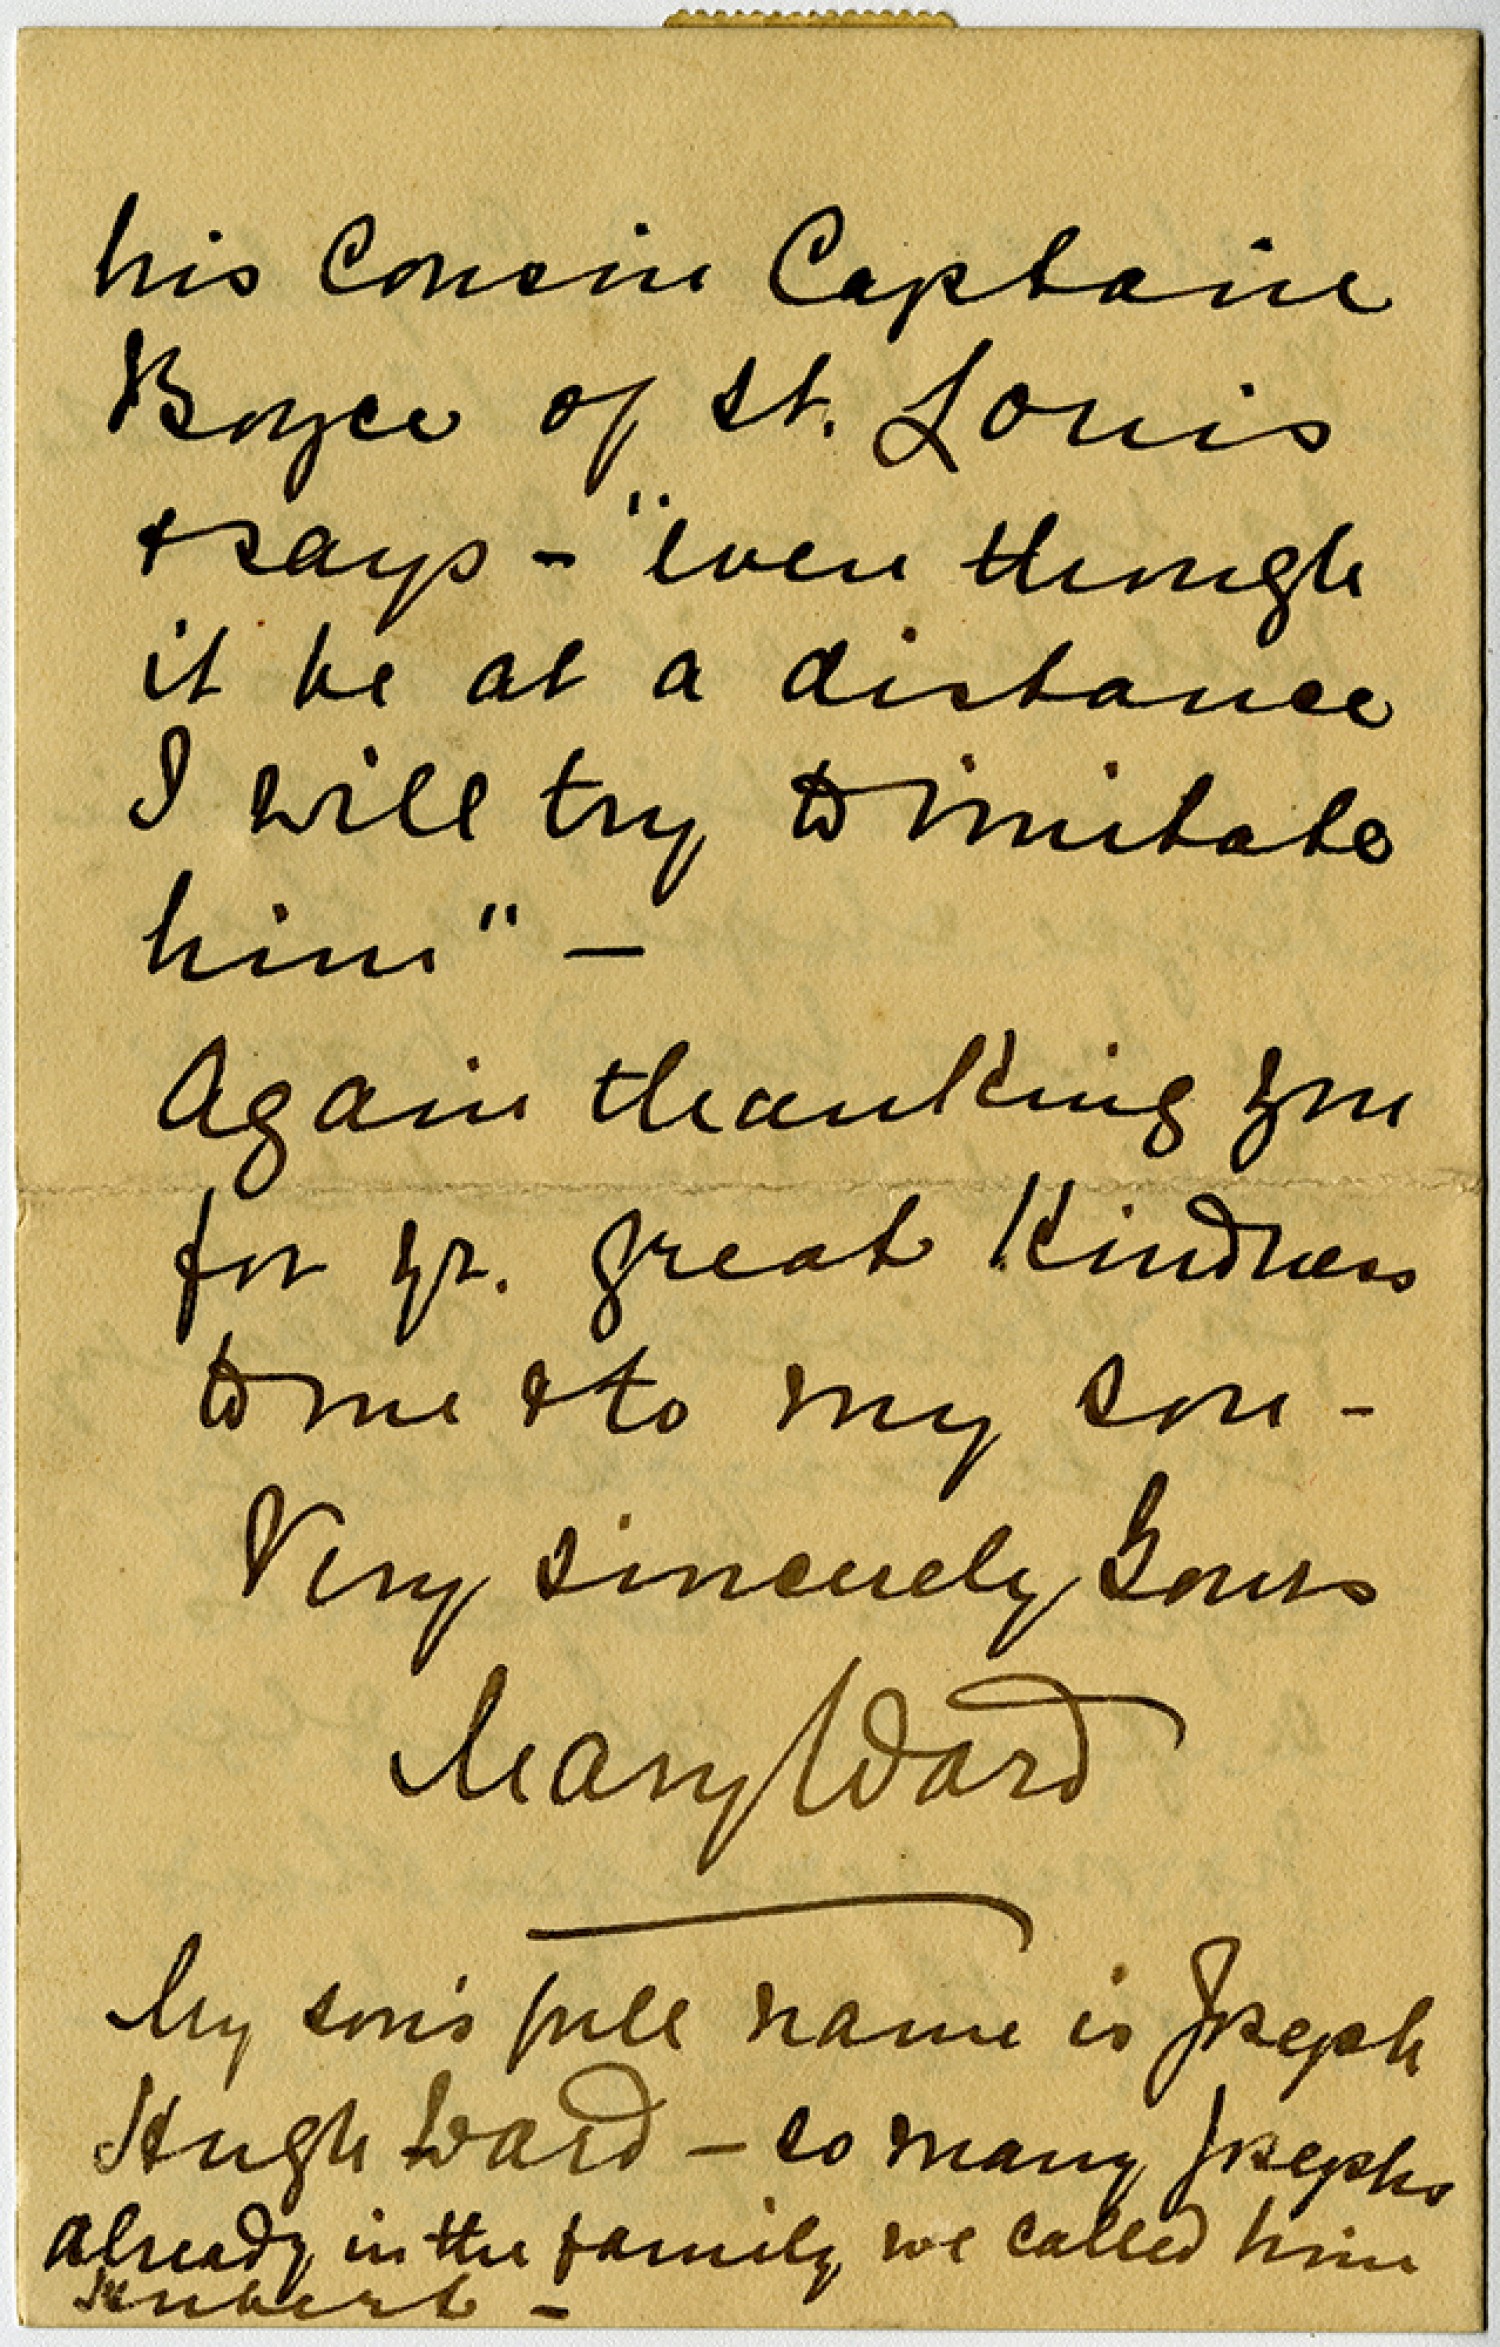 his Cousin Captain
Boyce of St. Louis
& says - "even though
it be at a distance
I will try to imitate
him" —
Again thanking you
for yr. great kindness
to me & to my son -
Very sincerely Yours
Mary Ward
My son's full name is Joseph
Hugh Ward — so many Josephs
already in the family we called him
Hubert -